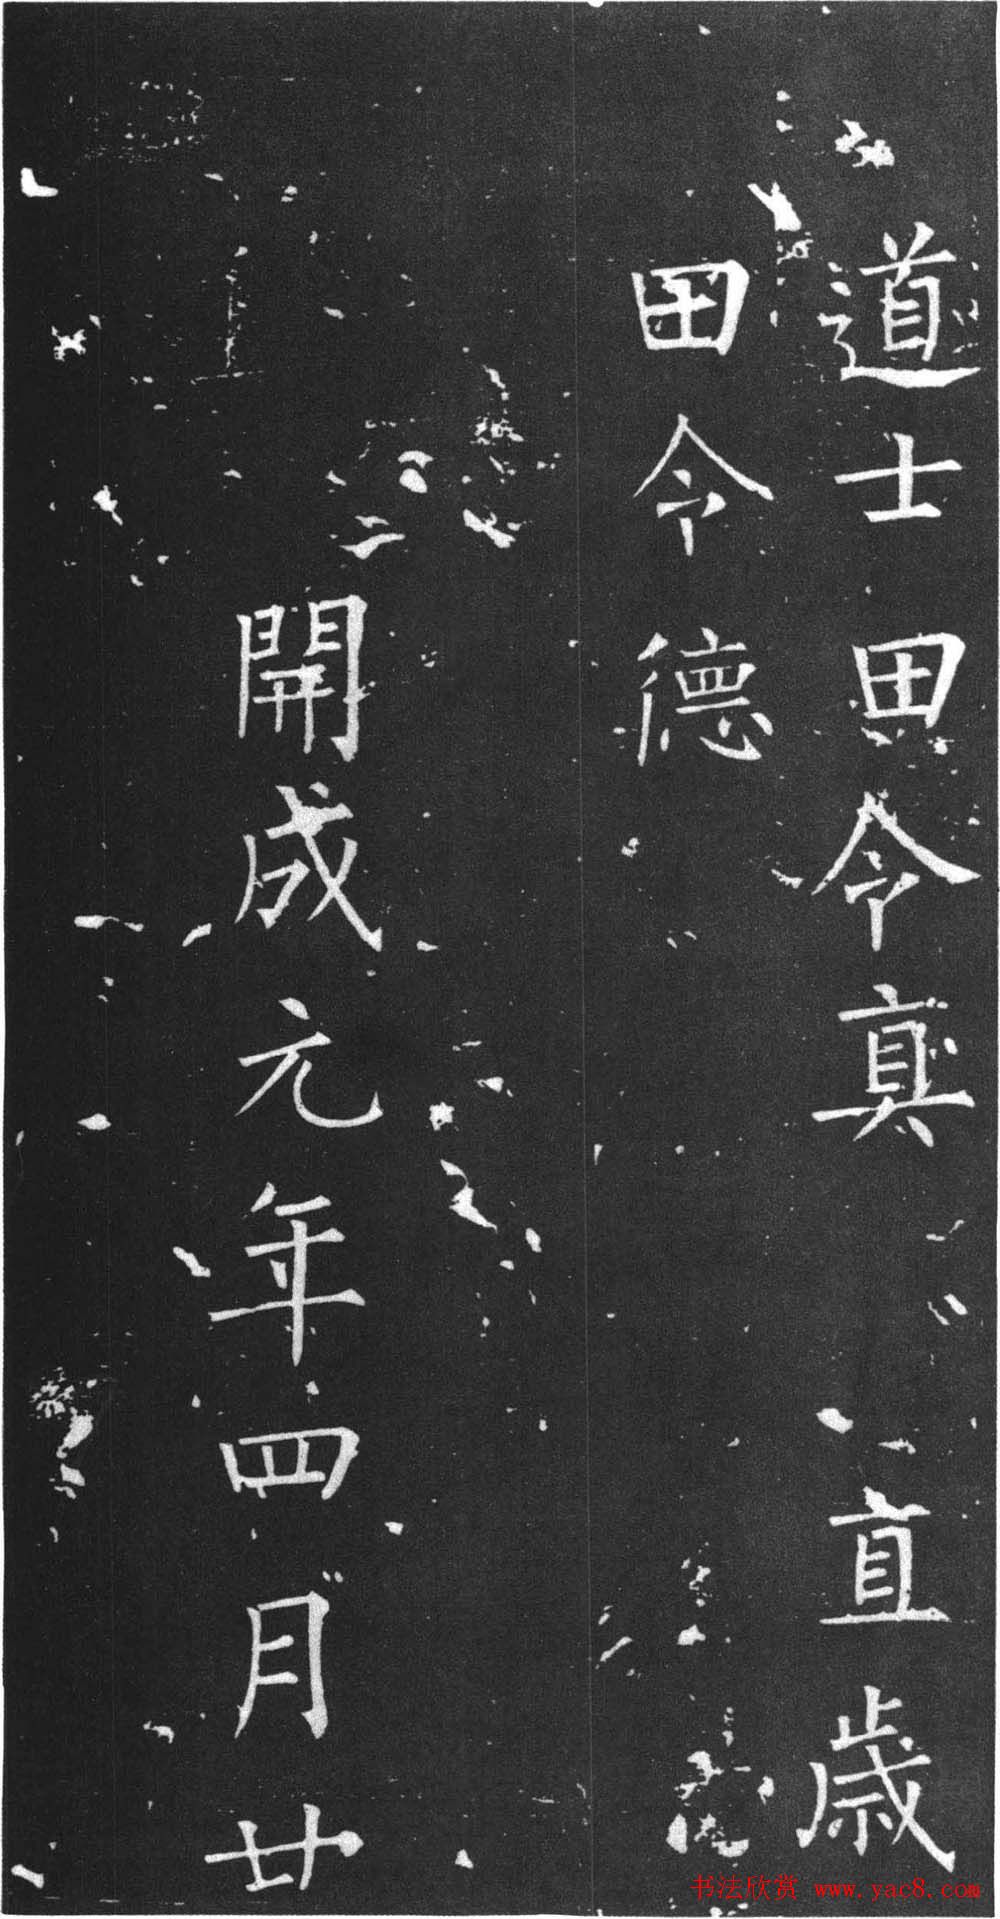 道士田令真 直歲
田令德
開成元年四月廿
书法欣赏 www.yac8.com